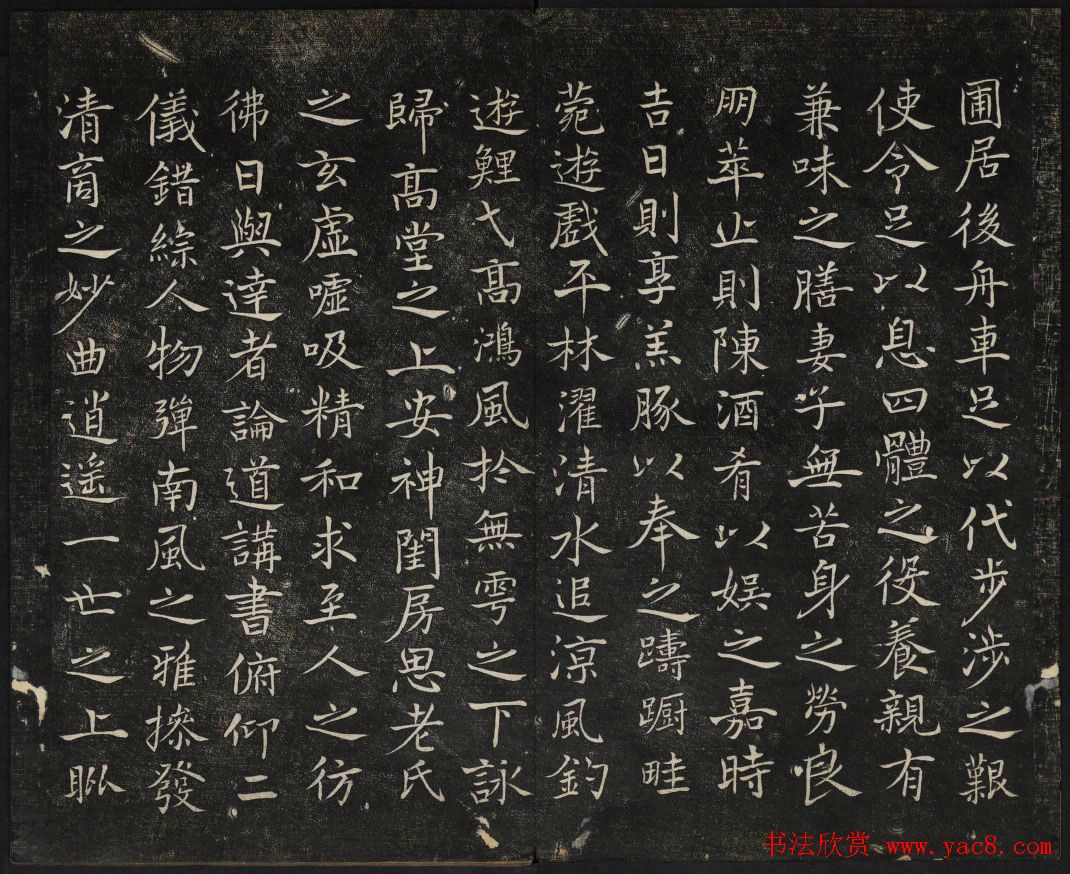 圃居後舟車足以代步涉之艱
使令足以息四體之役養親有
兼味之膳妻子無苦身之勞良
朋萃止則陳酒肴以娛之嘉時
吉日則享羔豚以奉之躊躕畦
菀遊戲平林濯清水追涼風釣
遊鯉弋高鴻風於無雩之下詠
歸高堂之上安神閨房思老氏
之玄虛嘘吸精和求至人之彷
彿日與達者論道講書俯仰二
儀錯綜人物彈南風之雅操發
清商之妙曲逍遥一世之上
书法欣赏 www.yac8.com